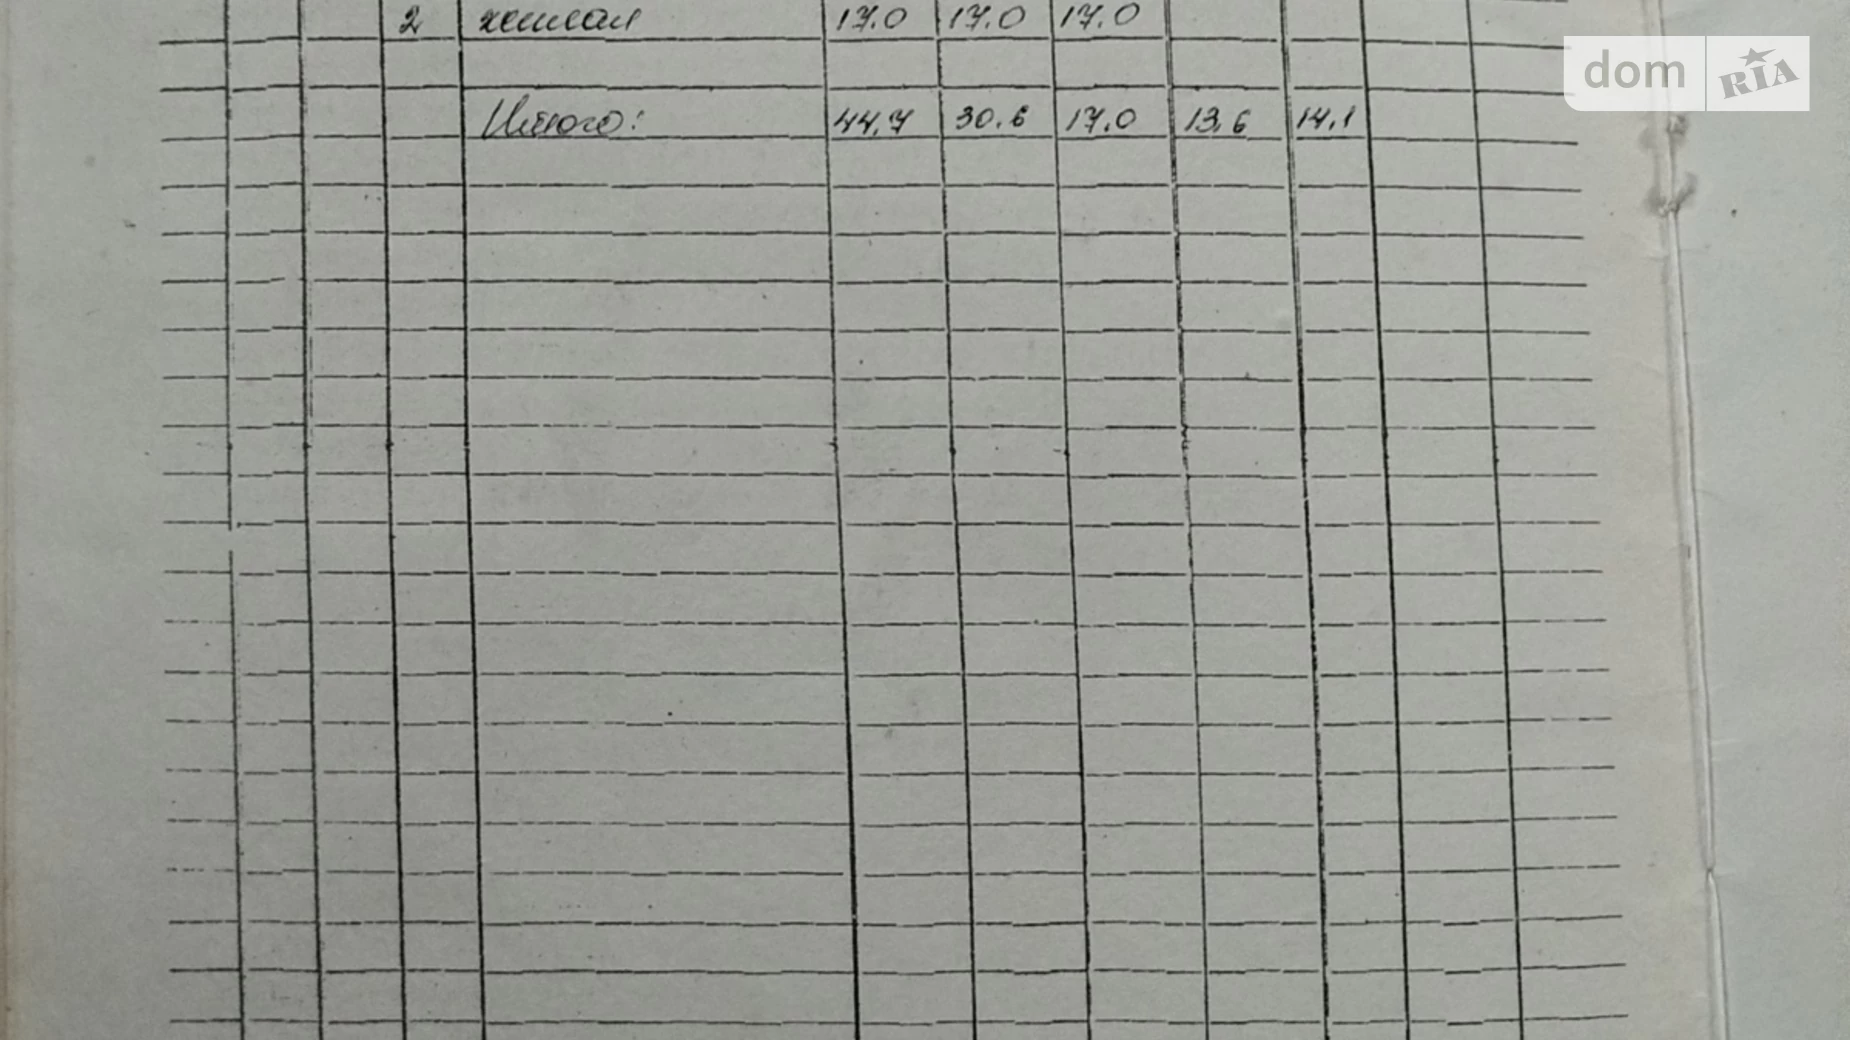 2 жилая 17.0 17.0 17.0
Итого: 44,7 30.6 17.0 13,6 14,1
dom RIA